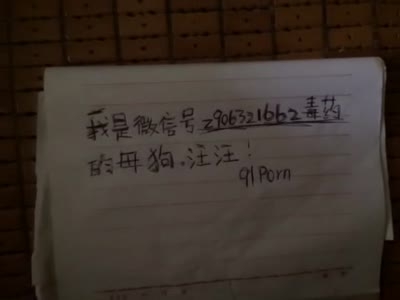 我是微信号2906321662毒药
的母狗.汪汪!
91Porn